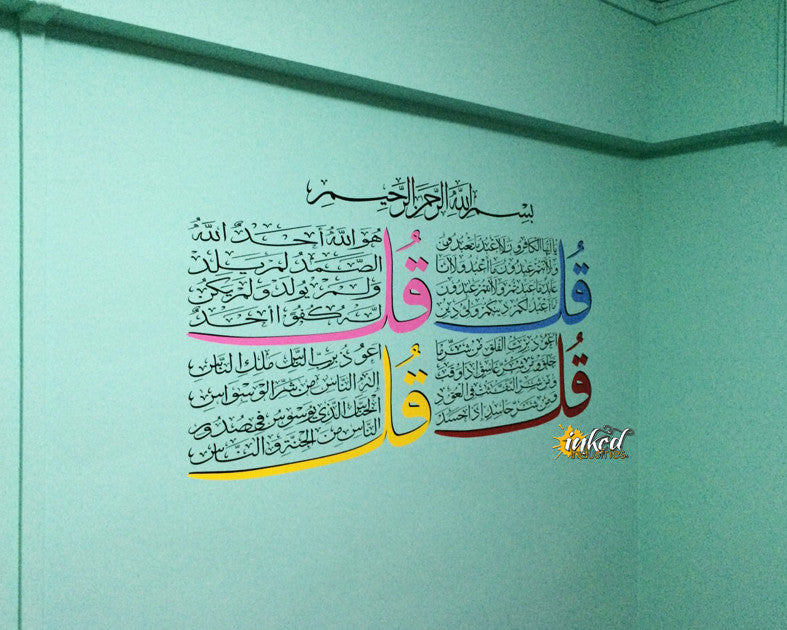 بِسْمِ اللهِ الرَّحْمَنِ الرَّحِيمِ
قُل
يا ايها الكافرون لا اعبد ما تعبدون
ولا انتم عبدون ما اعبد ولا انا
عابد ما عبدتم ولا انتم عبدون
ما اعبد لكم دينكم ولي دين
قُل
هُوَ اللهُ اَحَدٌ اَللهُ
الصَّمَدُ لَمْ يَلِدْ
وَلَمْ يُولَدْ وَلَمْ يَكُنْ
لَهُ كُفُوًا اَحَدٌ
قُل
اعوذ برب الفلق من شر ما
خلق ومن شر غاسق اذا وقب
ومن شر النفثت في العقد
ومن شر حاسد اذا حسد
قُل
اعوذ برب الناس ملك الناس
اله الناس من شر الوسواس
الخناس الذي يوسوس في صدور
الناس من الجنة و الناس
inked
INDUSTRIES